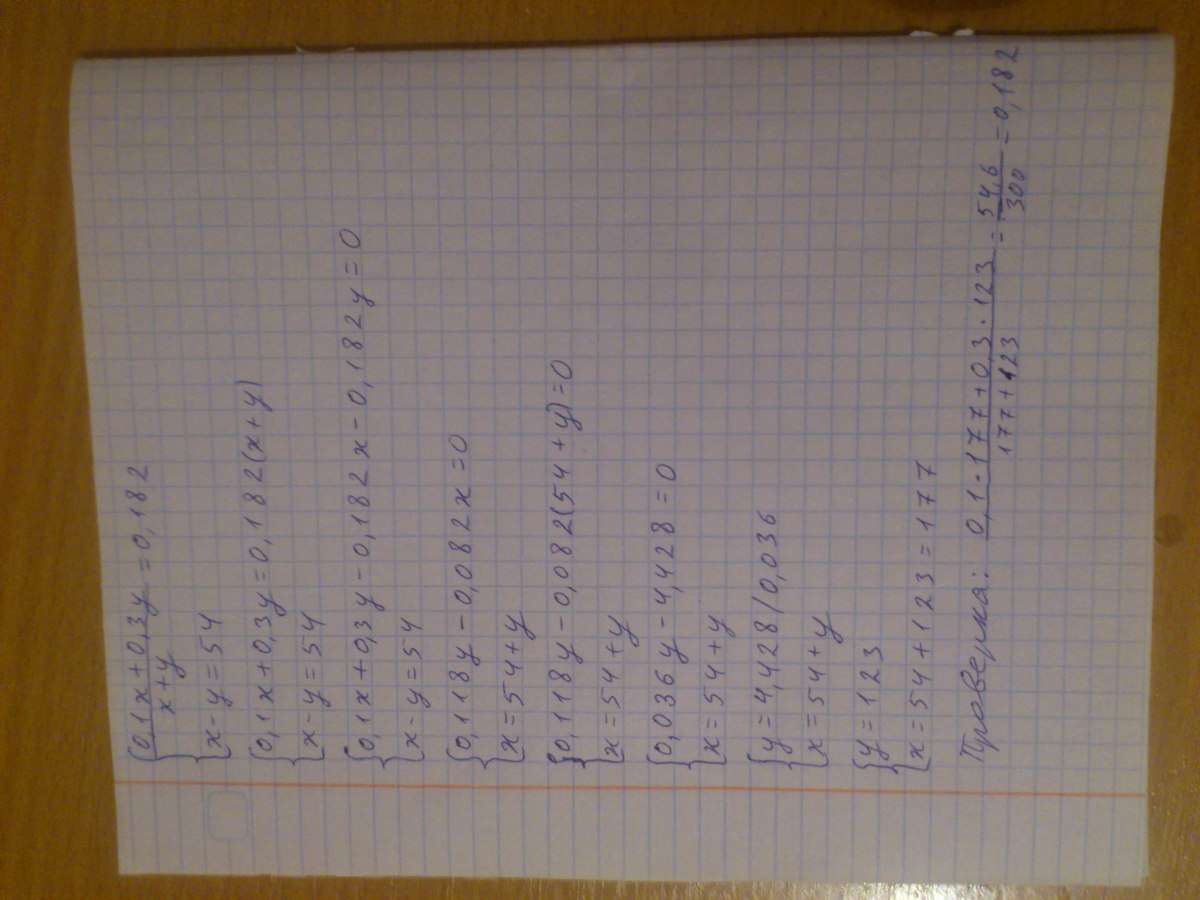 {(0,1x+0,3y)/(x+y)=0,182
{x-y=54
{0,1x+0,3y=0,182(x+y)
{x-y=54
{0,1x+0,3y-0,182x-0,182y=0
{x-y=54
{0,118y-0,082x=0
{x=54+y
{0,118y-0,082(54+y)=0
{x=54+y
{0,036y-4,428=0
{x=54+y
{y=4,428/0,036
{x=54+y
{y=123
{x=54+123=177
Проверка: (0,1·177+0,3·123)/(177+123)=54,6/300=0,182